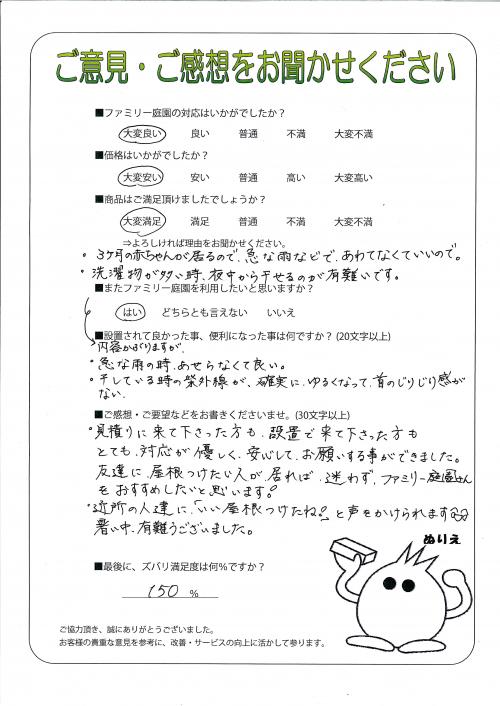 ご意見・ご感想をお聞かせください
■ファミリー庭園の対応はいかがでしたか？
大変良い 良い 普通 不満 大変不満
■価格はいかがでしたか？
大変安い 安い 普通 高い 大変高い
■商品はご満足頂けましたでしょうか？
大変満足 満足 普通 不満 大変不満
⇒よろしければ理由をお聞かせください。
・3ヶ月の赤ちゃんが居るので、急な雨などで、あわてなくていいので。
・洗濯物が多い時、夜中から干せるのが有難いです。
■またファミリー庭園を利用したいと思いますか？
はい どちらとも言えない いいえ
■設置されて良かった事、便利になった事は何ですか？(20文字以上)
内容かぶりますが、
・急な雨の時、あせらなくて良い。
・干している時の紫外線が、確実に、ゆるくなって、首のじりじり感が
ない。
■ご感想・ご要望などをお書きくださいませ。(30文字以上)
・見積りに来て下さった方も、設置で来て下さった方も
とても、対応が優しく、安心して、お願いする事ができました。
友達に、屋根つけたい人が居れば、迷わず、ファミリー庭園さん
をおすすめしたいと思います!
・近所の人達に、「いい屋根つけたね!」と声をかけられます
暑い中、有難うございました。
ぬりえ
■最後に、ズバリ満足度は何％ですか？
150 %
ご協力頂き、誠にありがとうございました。
お客様の貴重な意見を参考に、改善・サービスの向上に活かして参ります。